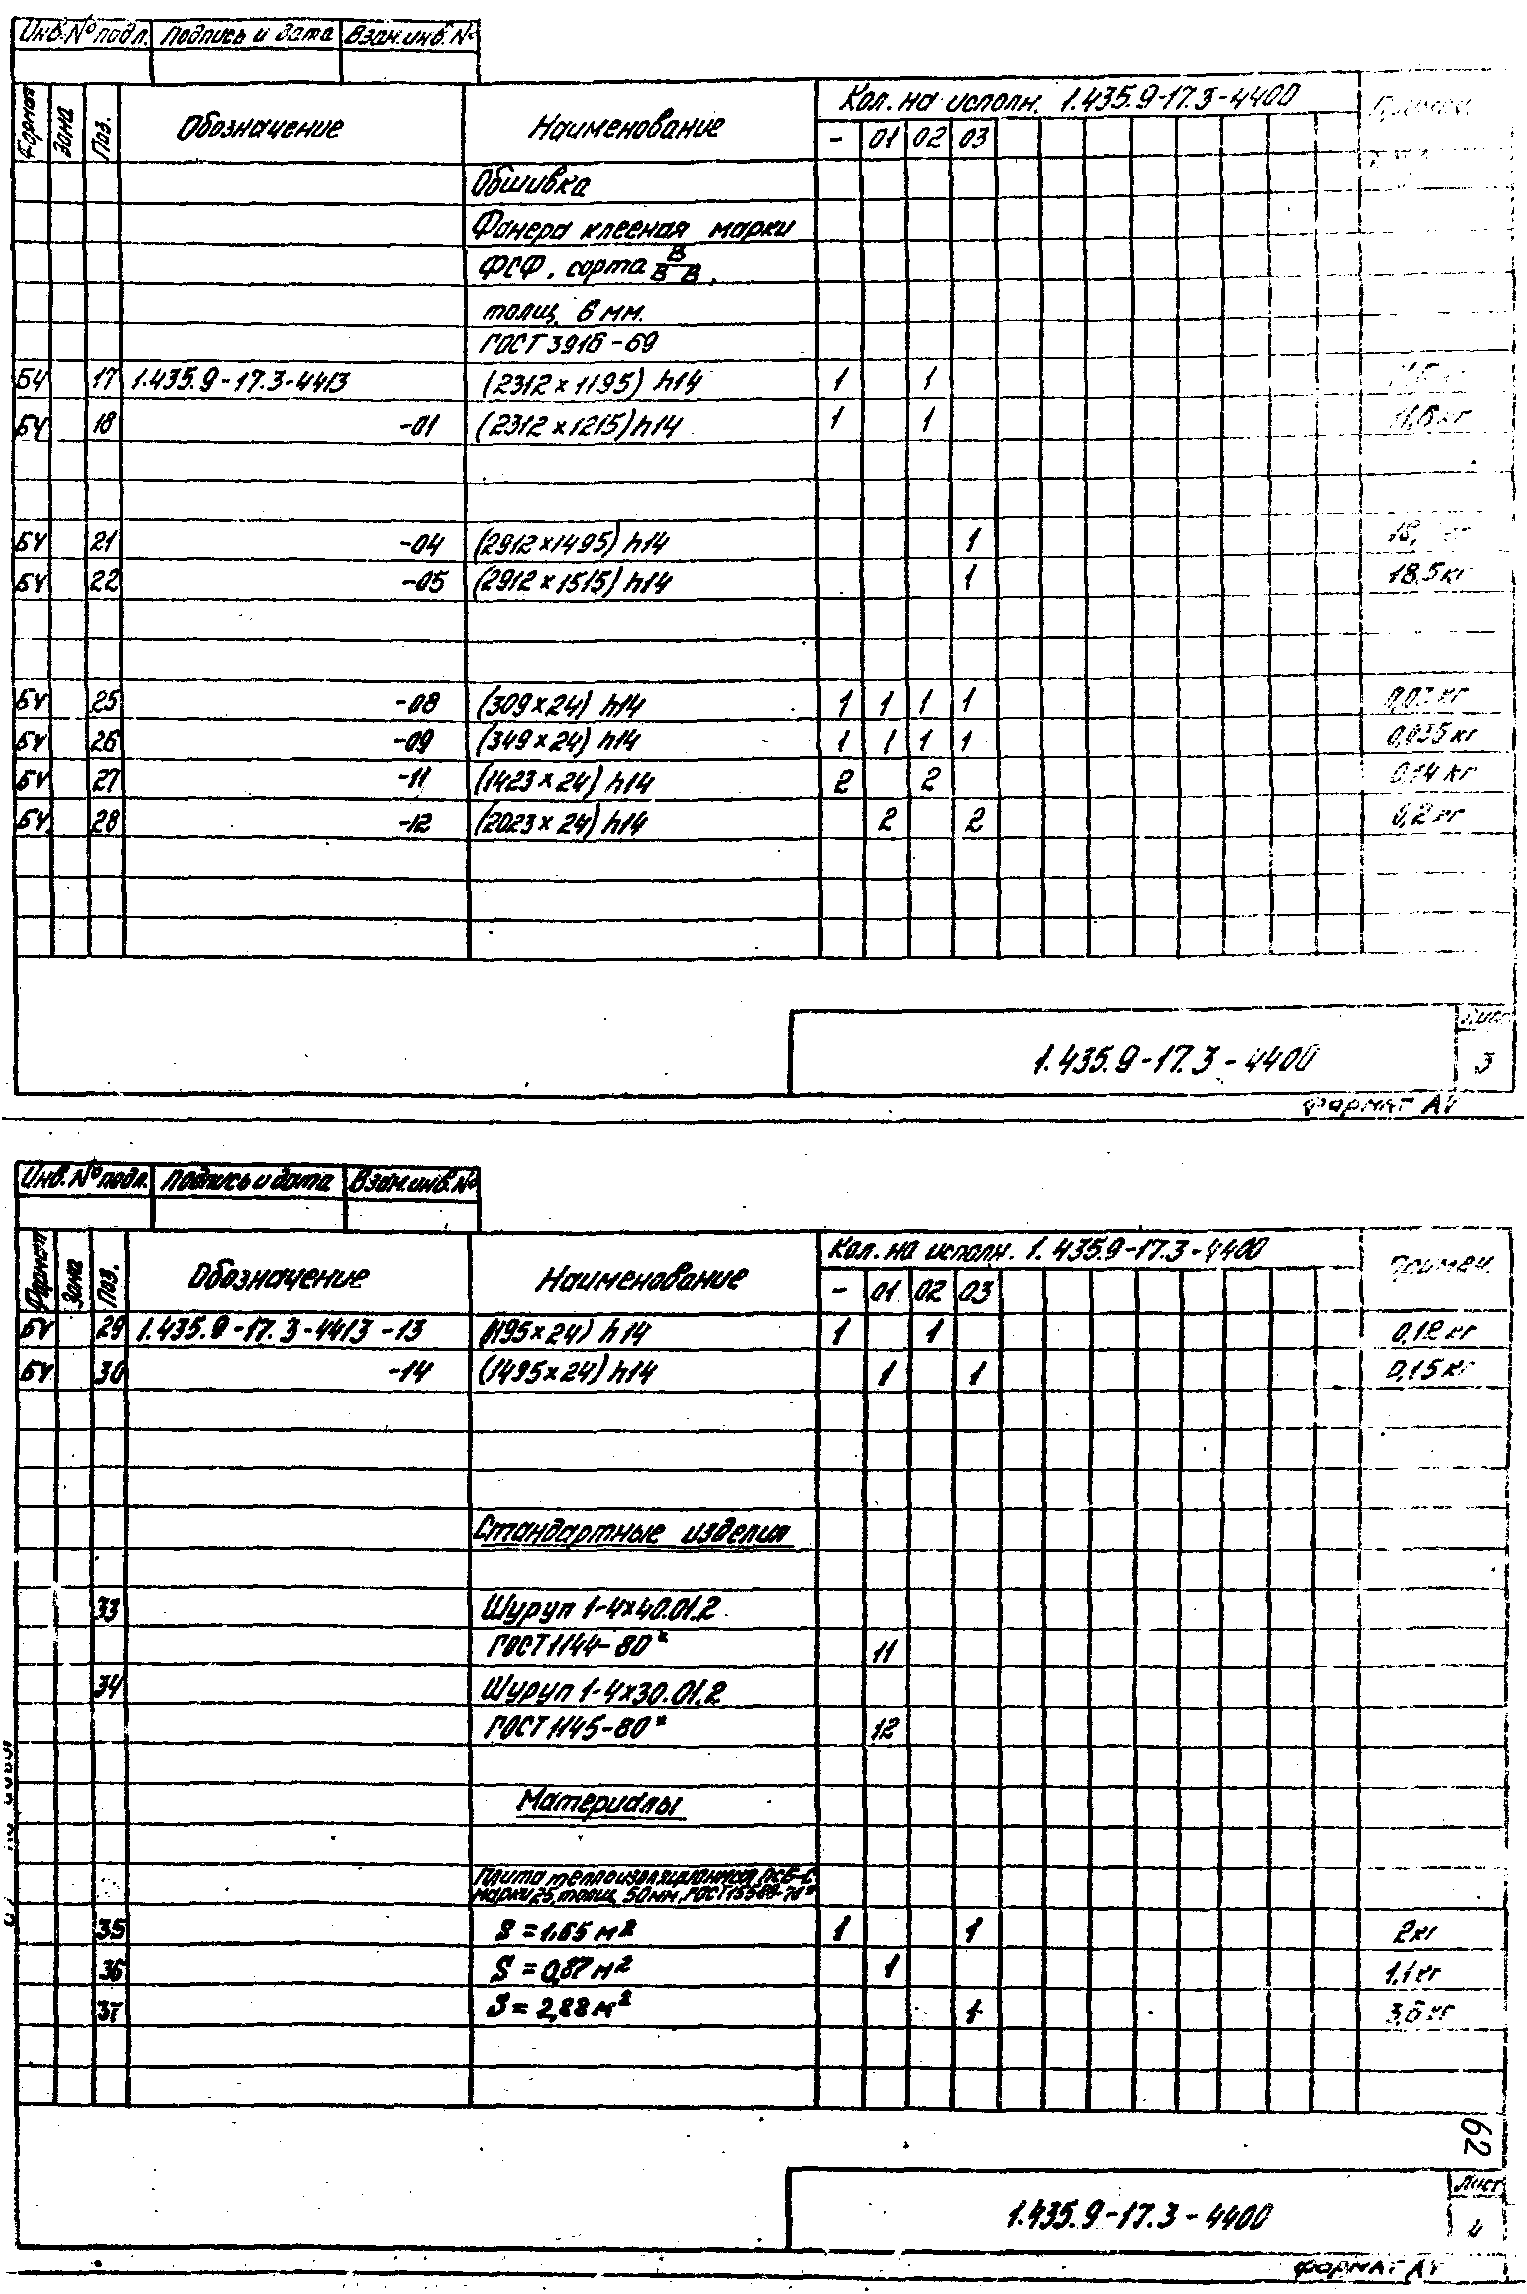 Инв. № подл. Подпись и дата Взам. инв. №
Формат Зона Поз. Обозначение Наименование Кол. на исполн. 1.435.9-17.3-4400
- 01 02 03
Обшивка
Фанера клееная марки
ФСФ, сорта В/ВВ,
толщ. 6 мм.
ГОСТ 3916-69
БЧ 17 1.435.9-17.3-4413 (2312×1195) h14 1 1
БЧ 18 -01 (2312×1215) h14 1 1 11,6 кг
БЧ 21 -04 (2912×1495) h14 1 кг
БЧ 22 -05 (2912×1515) h14 1 18,5 кг
БЧ 25 -08 (309×24) h14 1 1 1 1 0,03 кг
БЧ 26 -09 (349×24) h14 1 1 1 1 0,035 кг
БЧ 27 -11 (1423×24) h14 2 2 0,14 кг
БЧ 28 -12 (2023×24) h14 2 2 0,2 кг
1.435.9-17.3-4400 Лист
3
Формат А4
Инв. № подл. Подпись и дата Взам. инв. №
Формат Зона Поз. Обозначение Наименование Кол. на исполн. 1.435.9-17.3-4400 Примеч.
- 01 02 03
БЧ 29 1.435.9-17.3-4413 -13 (1195×24) h14 1 1 0,12 кг
БЧ 30 -14 (1495×24) h14 1 1 0,15 кг
Стандартные изделия
33 Шуруп 1-4×40.01.2
ГОСТ 1144-80* 11
34 Шуруп 1-4×30.01.2
ГОСТ 1145-80* 12
Материалы
Плита теплоизоляционная ПСБ-С
марки 25, толщ. 50 мм, ГОСТ 15588-70*
35 S = 1,65 м² 1 1 2 кг
36 S = 0,87 м² 1 1,1 кг
37 S = 2,88 м² 1 3,6 кг
62
1.435.9-17.3-4400 Лист
4
Формат А4